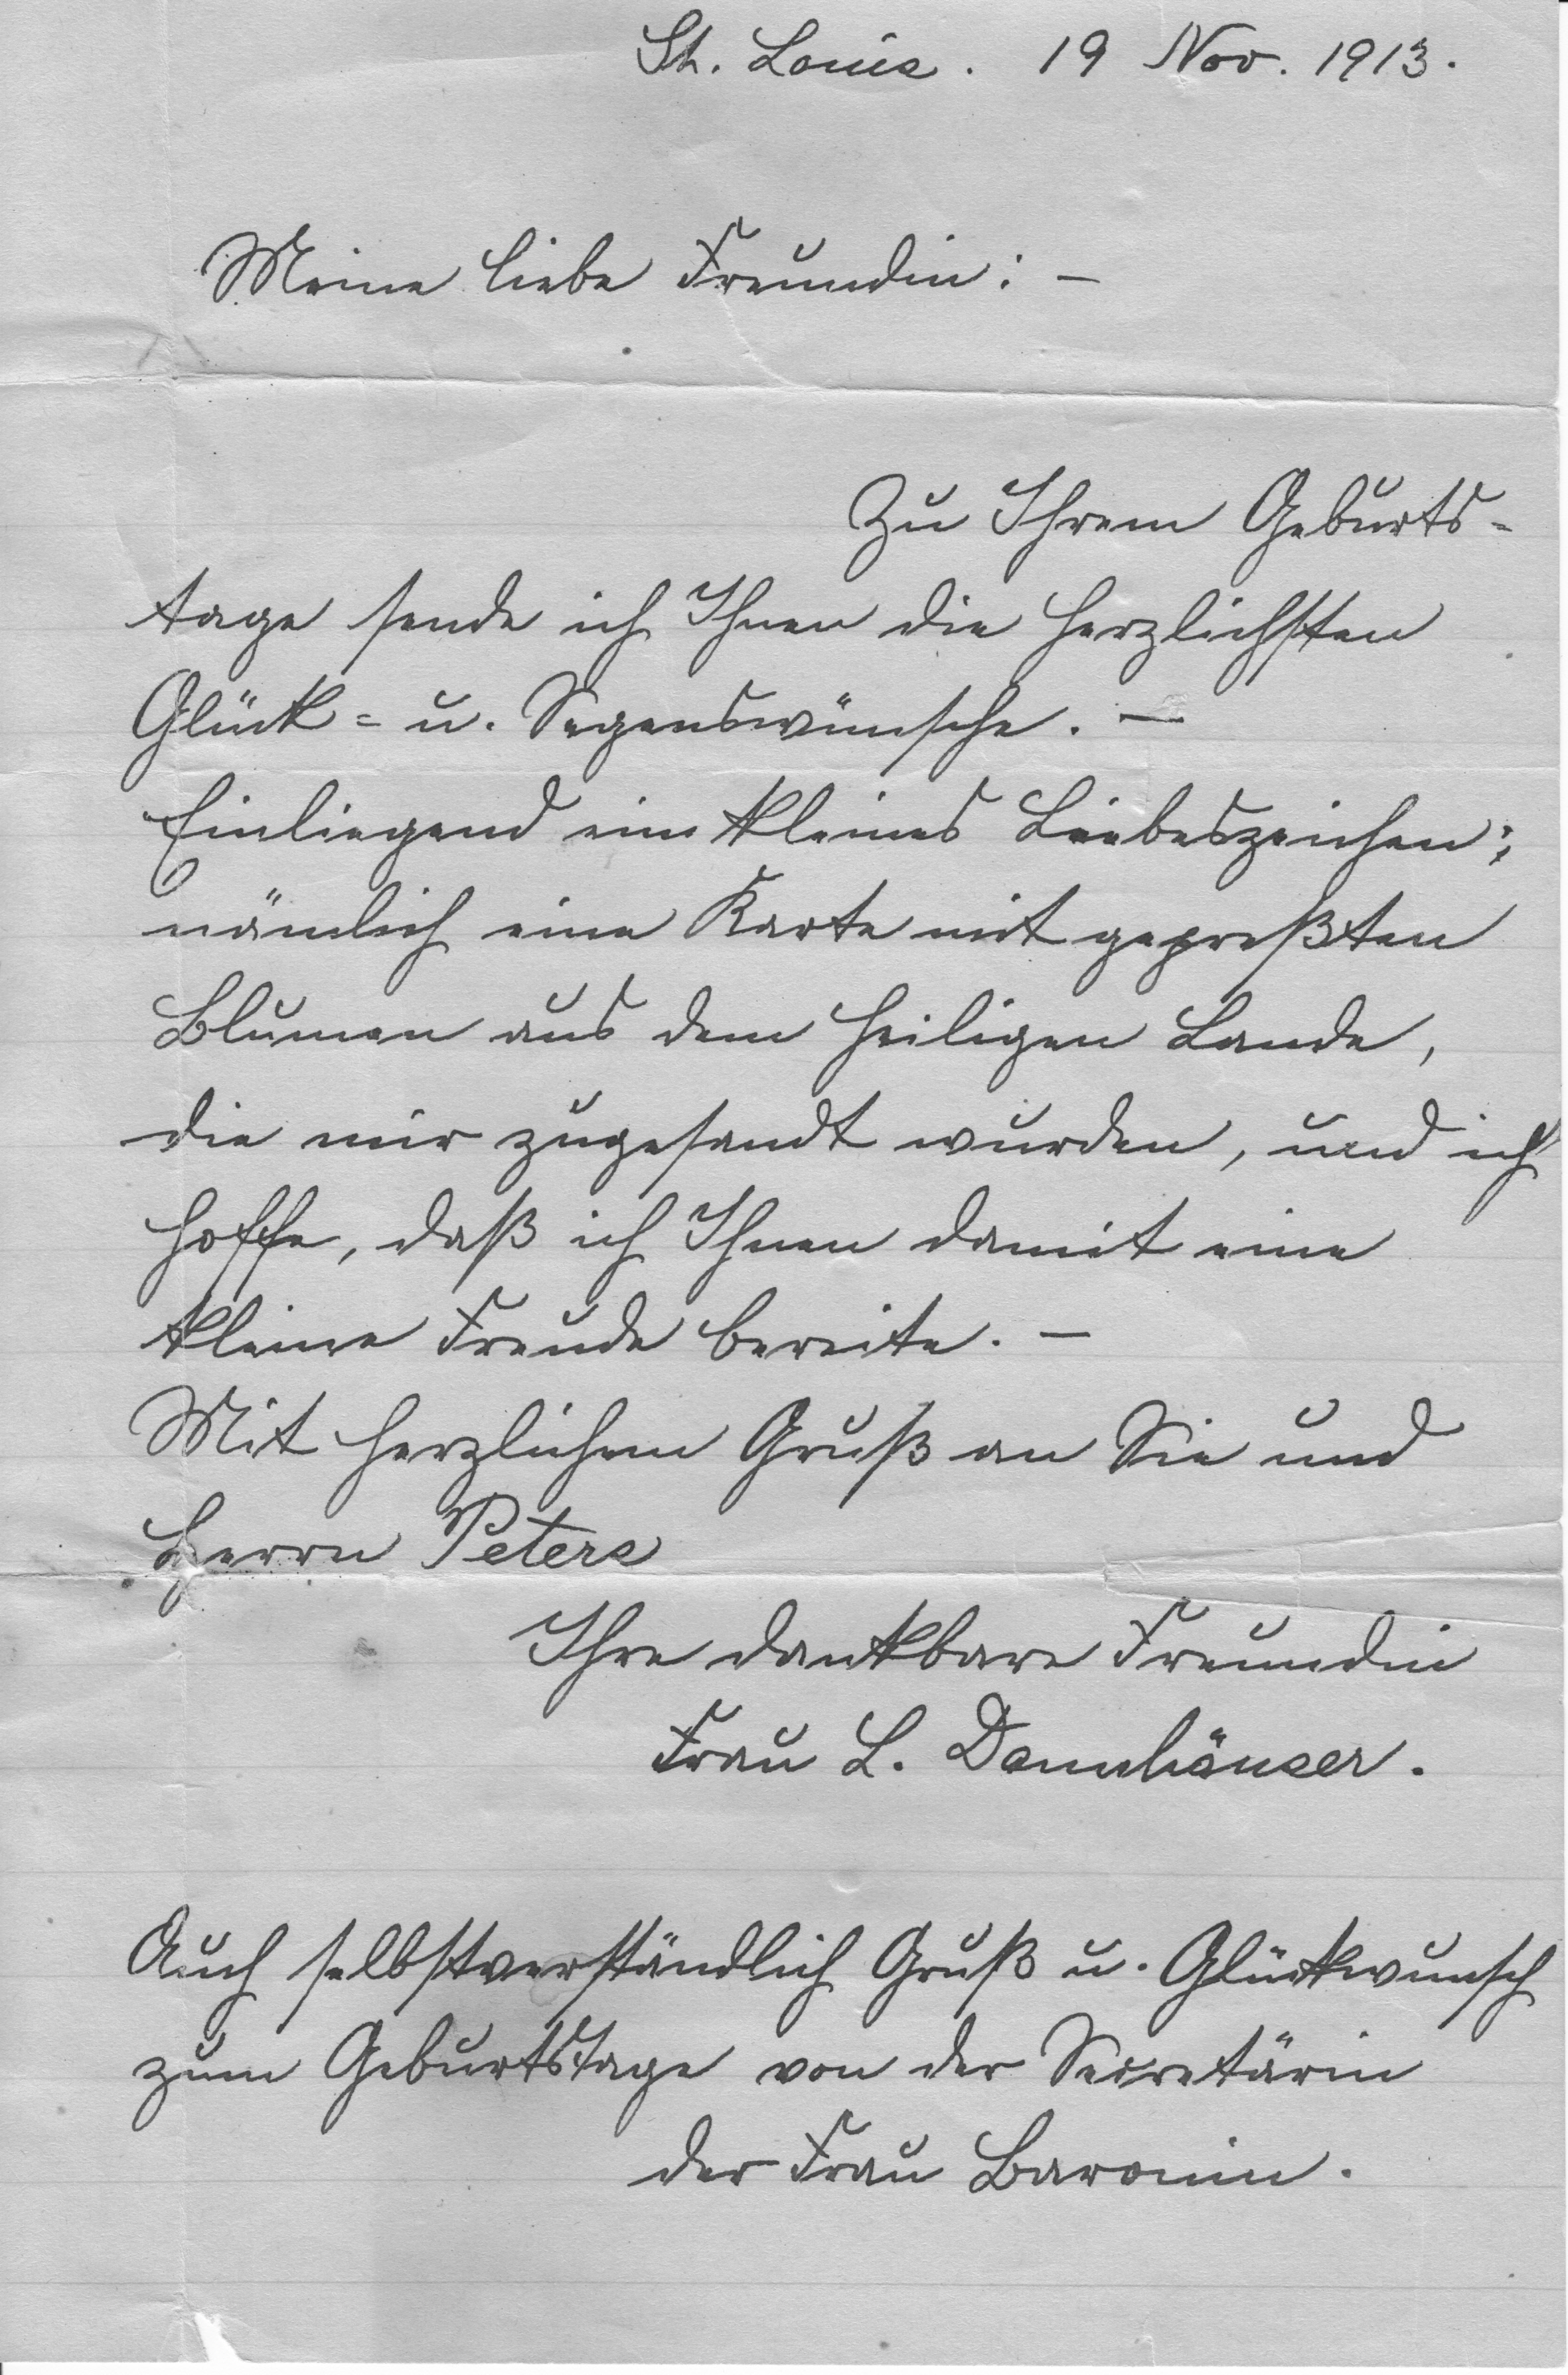 St. Louis. 19 Nov. 1913.
Meine liebe Freundin: –
Zu Ihrem Geburts-
tage sende ich Ihnen die herzlichsten
Glück- u. Segenswünsche. –
Einliegend ein kleines Liebeszeichen;
nämlich eine Karte mit gepreßten
Blumen aus dem heiligen Lande,
die mir zugesandt wurden, und ich
hoffe, daß ich Ihnen damit eine
kleine Freude bereite. –
Mit herzlichem Gruß an Sie und
Herrn Peters
Ihre dankbare Freundin
Frau L. Dannhäuser.
Auch selbstverständlich Gruß u. Glückwunsch
zum Geburtstage von der Secretärin
der Frau Baronin.